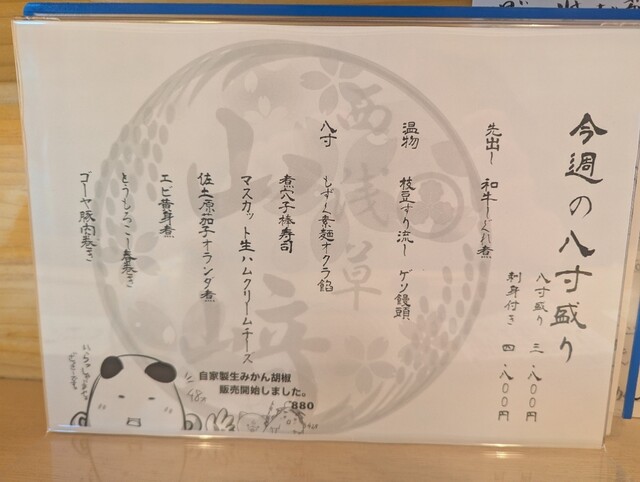 今週の八寸盛り
八寸盛り 三.八〇〇円
刺身付き 四.八〇〇円
先出し 和牛しぐれ煮
温物 枝豆すり流し ゲソ饅頭
八寸 もずく素麺オクラ餡
煮穴子棒寿司
マスカット生ハムクリームチーズ
佐土原茄子オランダ煮
エビ黄身煮
とうもろこし春巻き
ゴーヤ豚肉巻き
西浅草
山崎
自家製生みかん胡椒
販売開始しました。
880
いらっしゃいませ